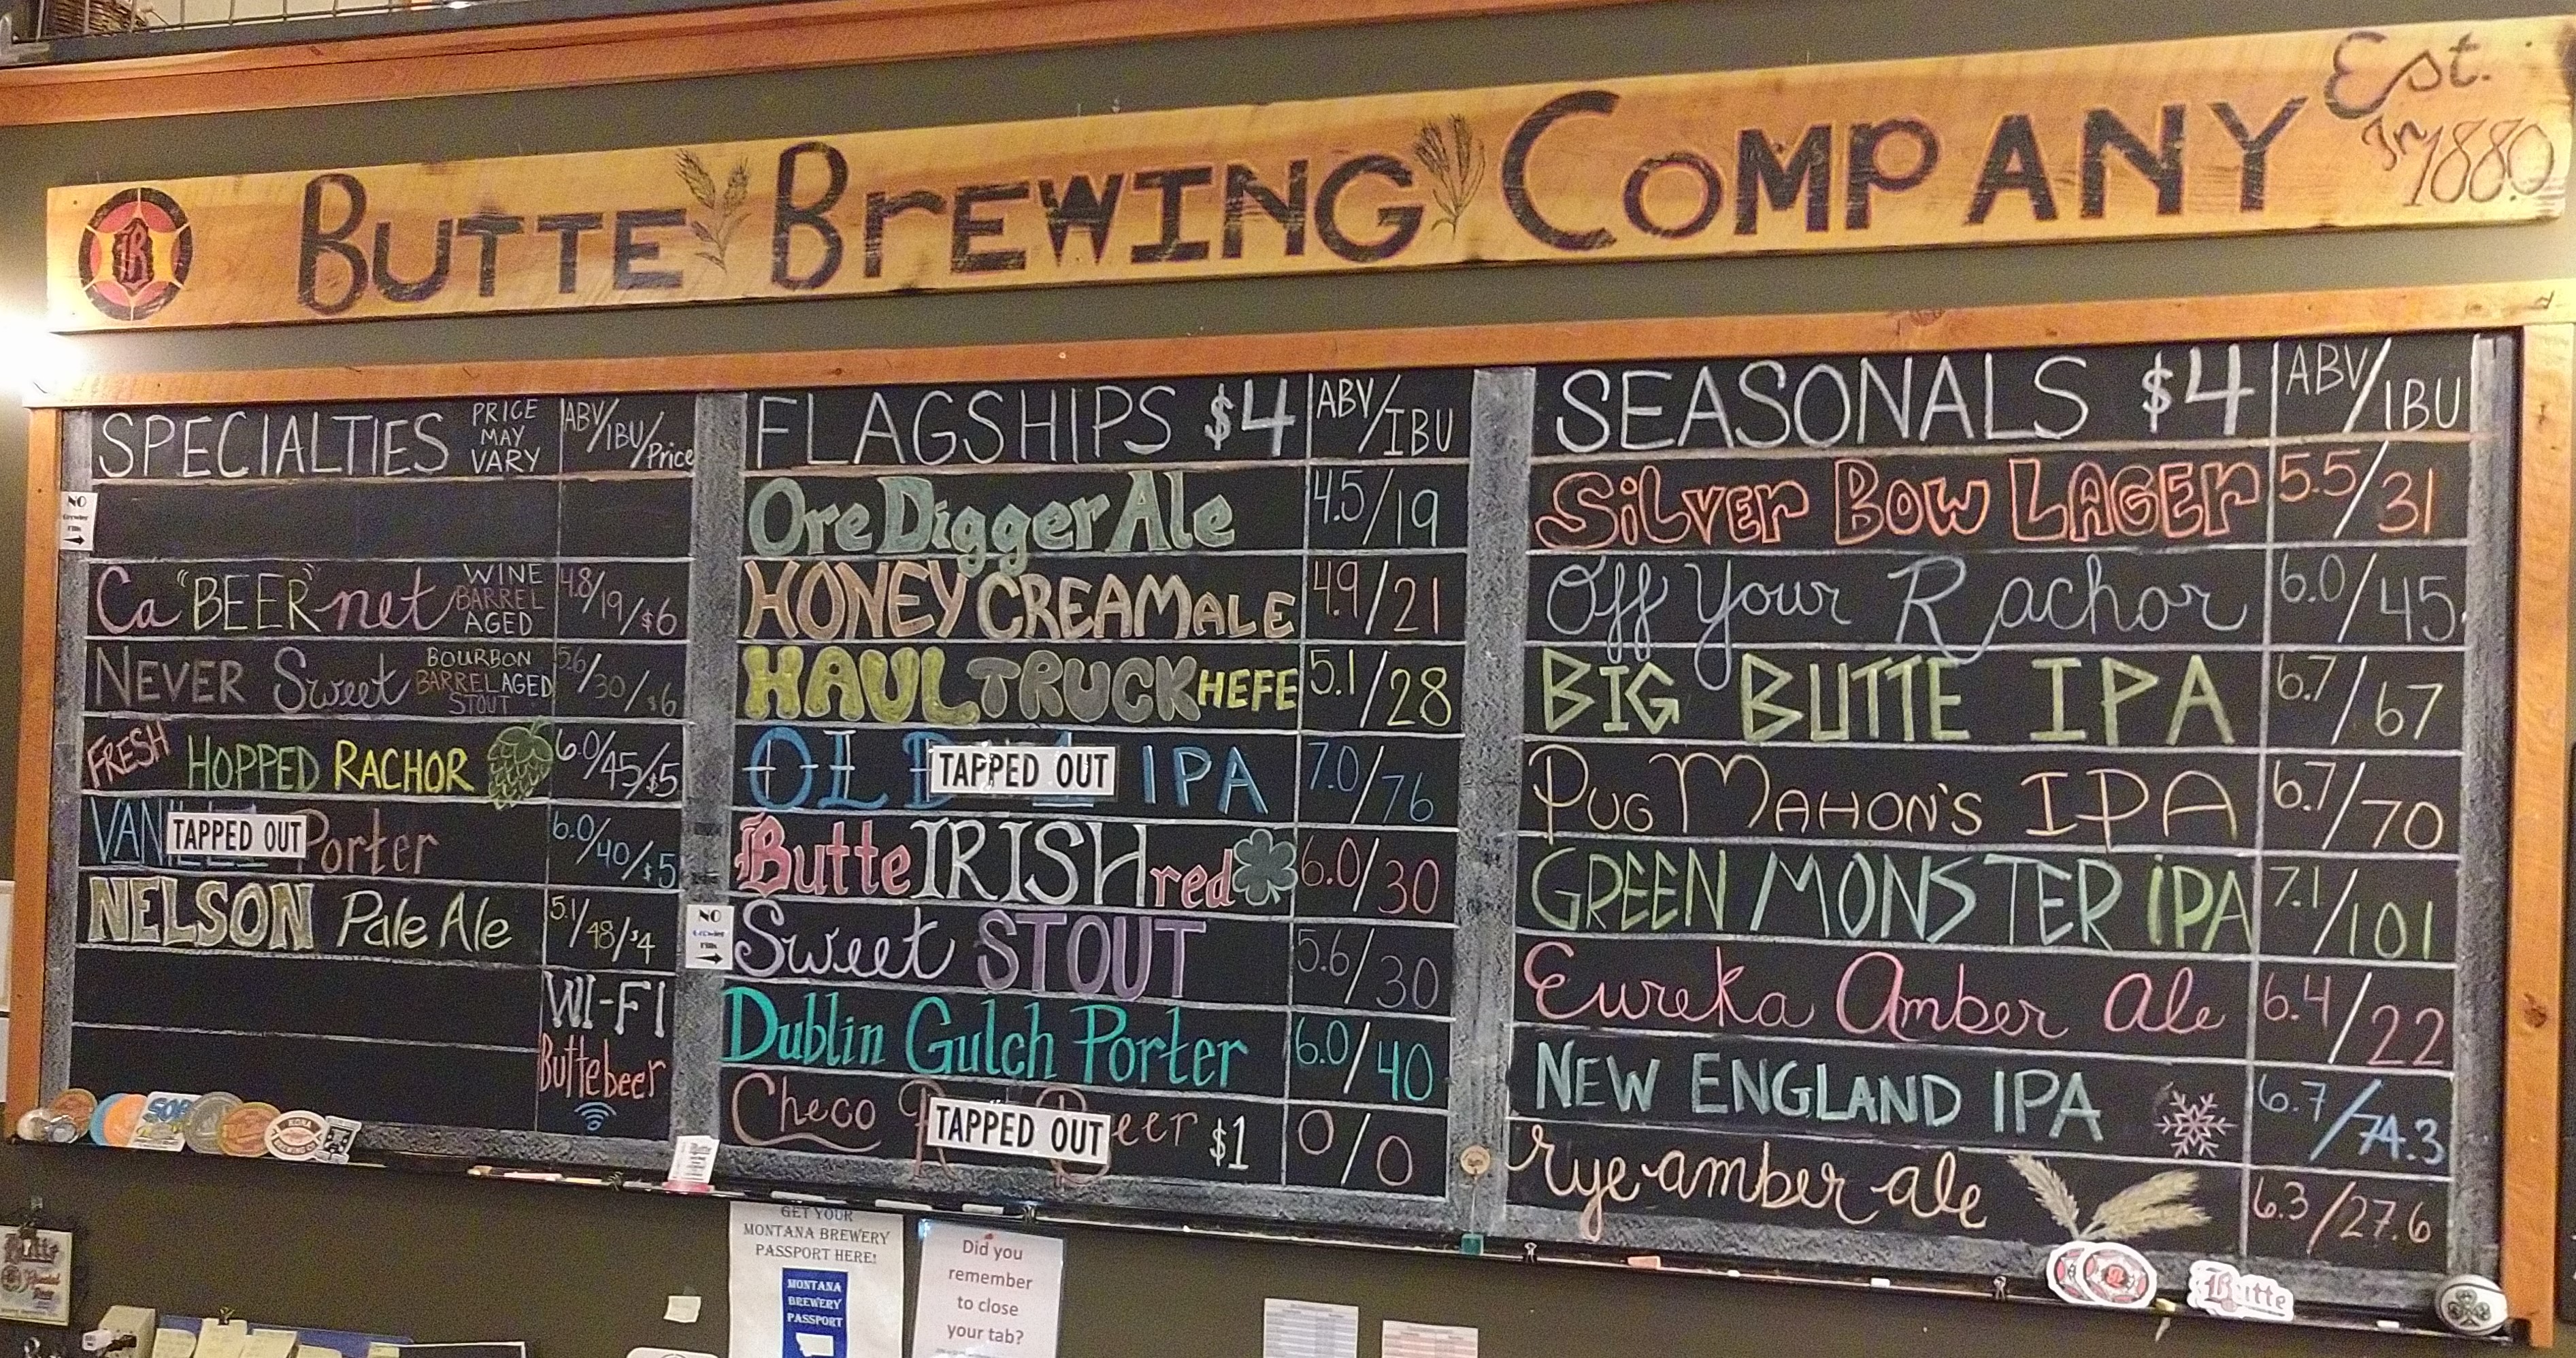 BUTTE BREWING COMPANY Est. in 1880.
B
SPECIALTIES PRICE MAY VARY ABV/IBU/Price
NO Growler Fills
Ca"BEER"net WINE BARREL AGED 4.8/19/$6
NEVER Sweet BOURBON BARREL AGED STOUT 5.6/30/$6
FRESH HOPPED RACHOR 6.0/45/$5
VAN TAPPED OUT Porter 6.0/40/$5
NELSON Pale Ale 5.1/48/$4
WI-FI
Buttebeer
FLAGSHIPS $4 ABV/IBU
Ore Digger Ale 4.5/19
HONEY CREAM ALE 4.9/21
HAUL TRUCK HEFE 5.1/28
OLD TAPPED OUT IPA 7.0/76
Butte IRISH red 6.0/30
NO Growler Fills
Sweet STOUT 5.6/30
Dublin Gulch Porter 6.0/40
Checo R TAPPED OUT Beer $1 0/0
SEASONALS $4 ABV/IBU
SilVer BOW LAGEr 5.5/31
Off Your Rachor 6.0/45
BIG BUTTE IPA 6.7/67
PUG MAHON'S IPA 6.7/70
GREEN MONSTER iPA 7.1/101
Eureka Amber Ale 6.4/22
NEW ENGLAND IPA 6.7/74.3
rye amber ale 6.3/27.6
GET YOUR
MONTANA BREWERY
PASSPORT HERE!
MONTANA
BREWERY
PASSPORT
Did you
remember
to close
your tab?
Butte